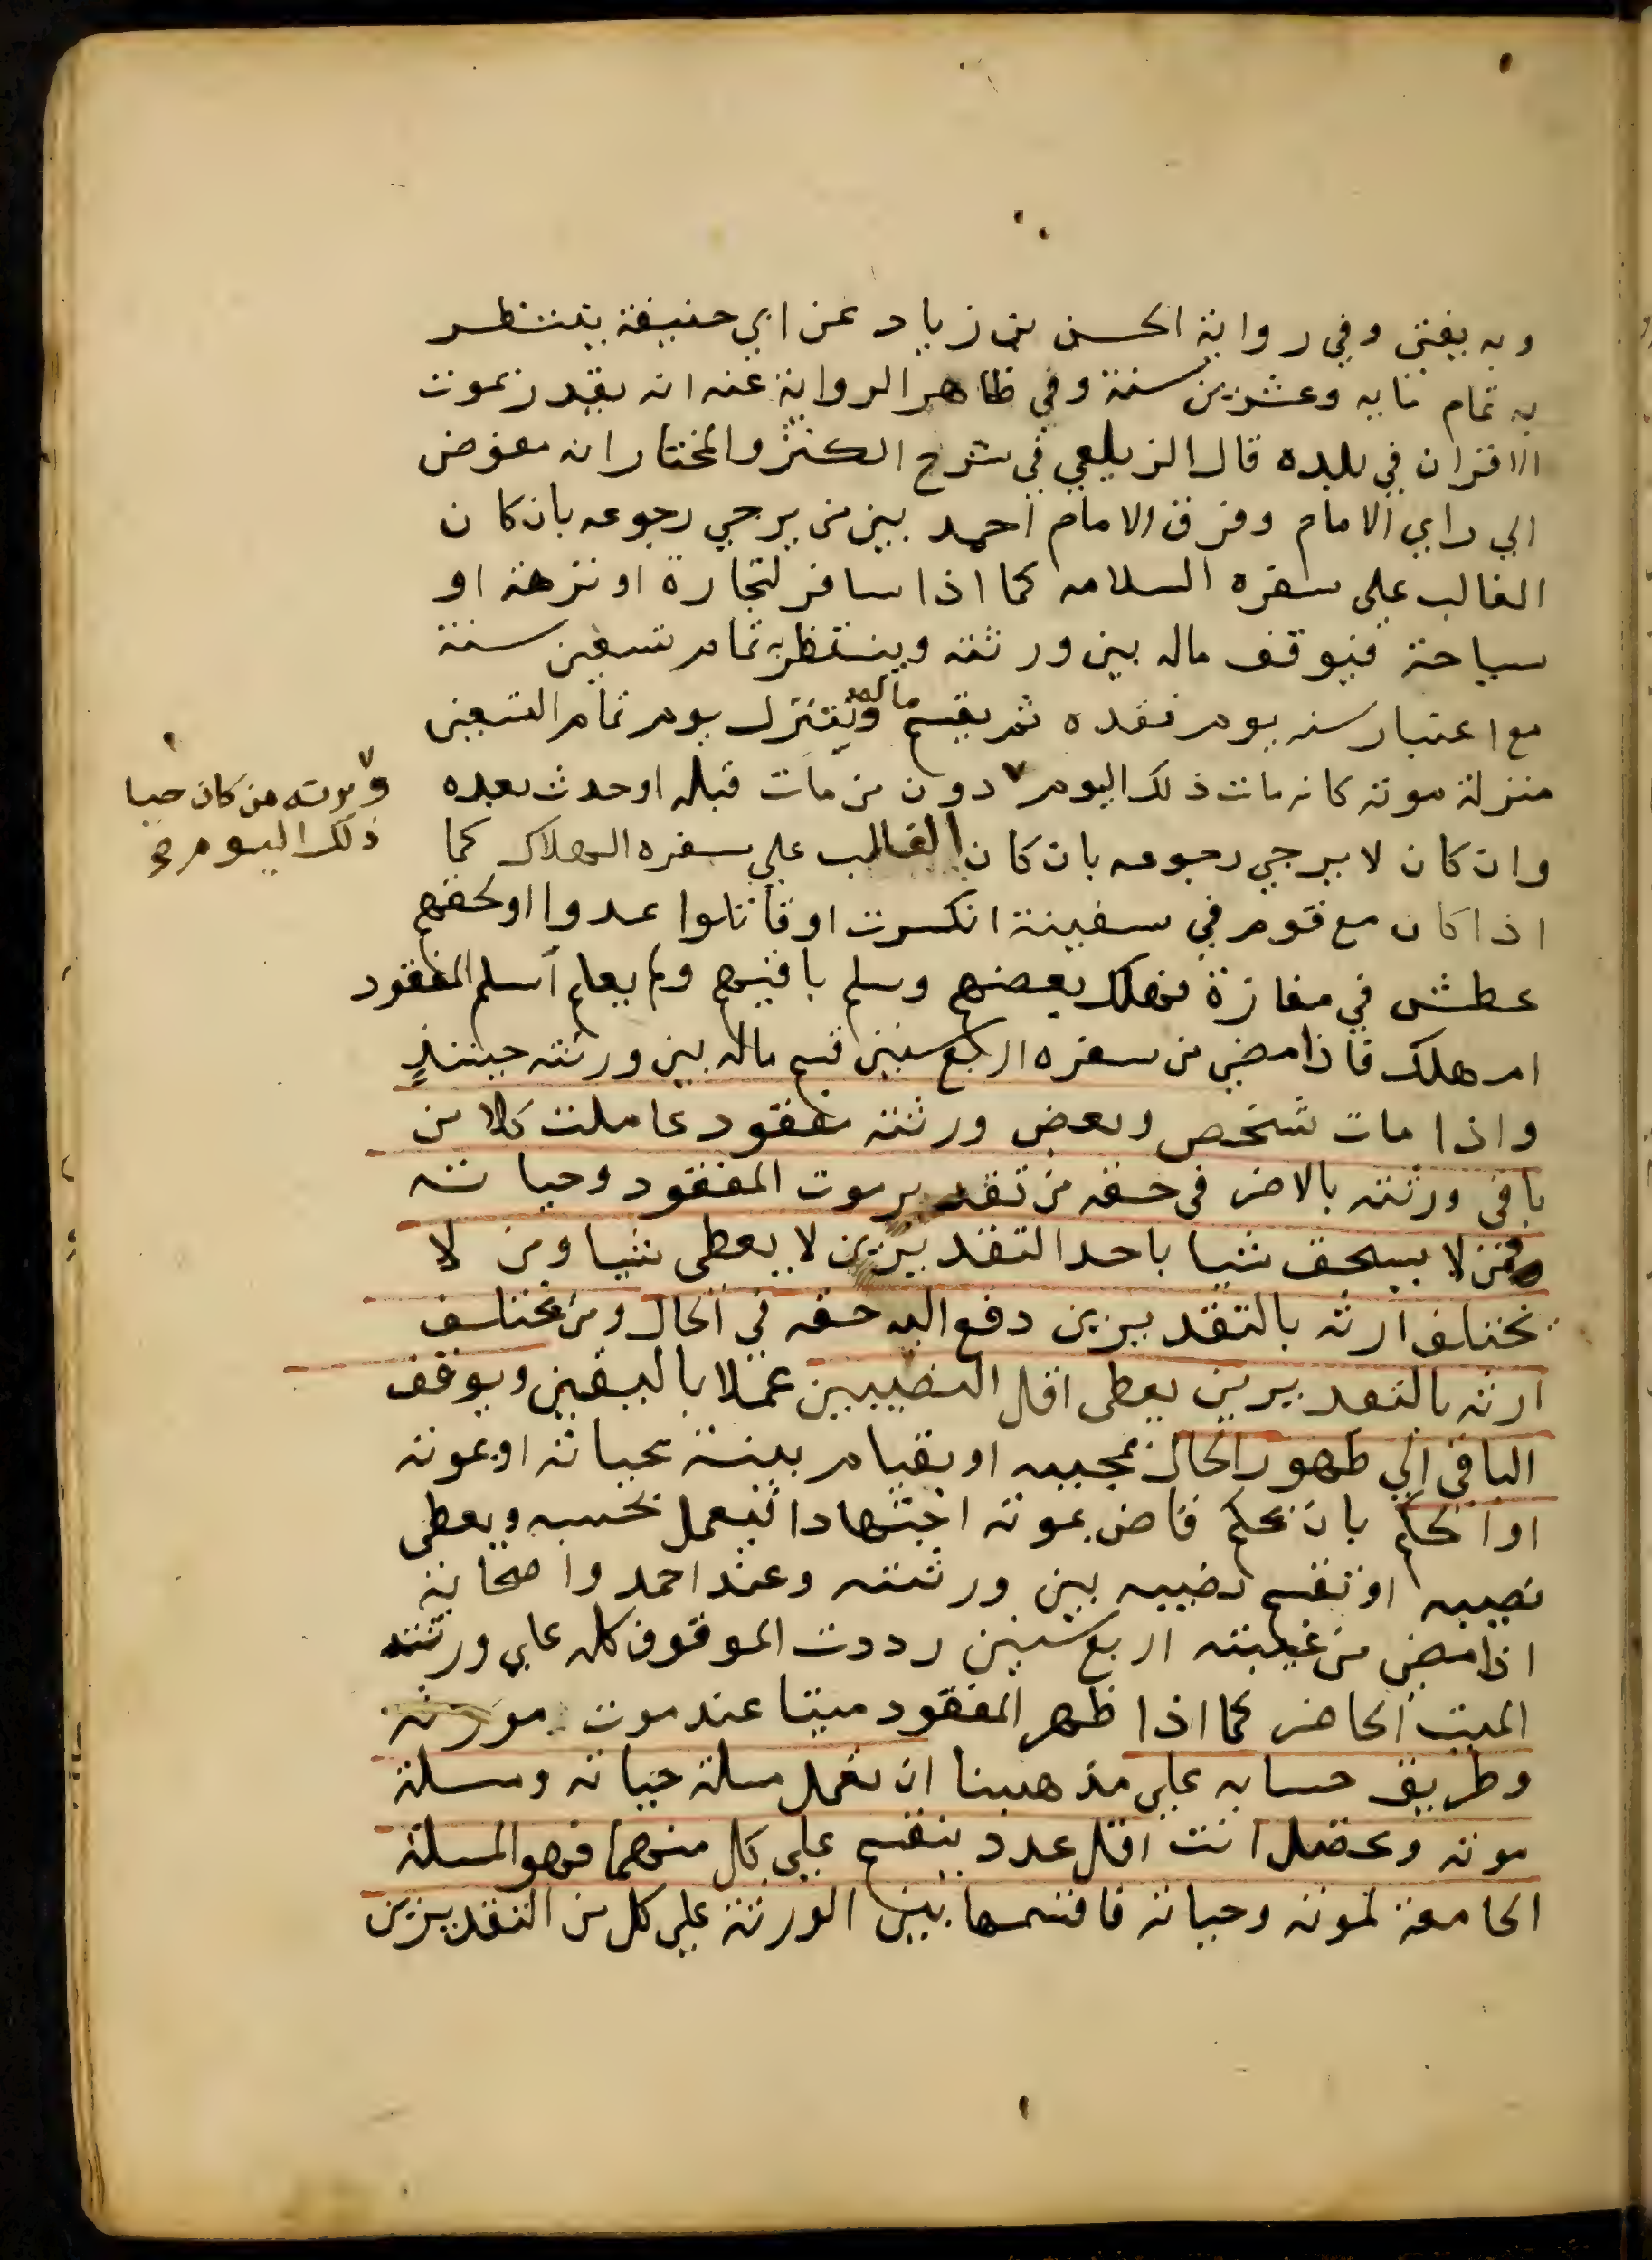 وبه يفتى وفي رواية الحسن بن زياد عن ابي حنيفة ينتظر
به تمام مايه وعشرين سنة وفي ظاهر الرواية عنه انه يقدر بموت
الاقران في بلده قال الزيلعي في شرح الكنز والمختار انه مفوض
الي راي الامام وفرق الامام احمد بين من يرجي رجوعه بان كان
الغالب علي سفره السلامه كما اذا سافر لتجارة او نزهة او
سياحة فيوقف ماله بين ورثته وينتظر به تمام تسعين سنة
مع اعتبار سنه يوم فقده ثم يقسم ماله وينزل يوم تمام التسعين
منزلة موته كانه مات ذلك اليوم دون من مات قبله او حدث بعده
ويرثه من كان حيا
ذلك اليوم صح
وان كان لا يرجي رجوعه بان كان الغالب علي سفره الهلاك كما
اذا كان مع قوم في سفينة انكسرت او قاتلوا عدوا او لحقهم
عطش في مفازة فهلك بعضهم وسلم باقيهم ولم يعلم أسلم المفقود
ام هلك فاذا مضي من سفره اربع سنين قسم ماله بين ورثته حينئذٍ
واذا مات شخص وبعض ورثته مفقود عاملت كلا من
باقي ورثته بالاضر في حقه من تقدير موت المفقود وحياته
فمن لا يستحق شيا باحد التقديرين لا يعطى شيا ومن لا
يختلف ارثه بالتقديرين دفع اليه حقه في الحال ومن يختلف
ارثه بالتقديرين يعطى اقل النصيبين عملا باليقين ويوقف
الباقي الي ظهور الحال بمجيبه او بقيام بينة بحياته او بموته
او الحكم بان يحكم قاض بموته اجتهادا فيعمل بحسبه ويعطى
نصيبه او تقسم نصيبه بين ورثته وعند احمد واصحابه
اذا مضي من غيبته اربع سنين رددت الموقوف كله علي ورثته
الميت الحاضر كما اذا ظهر المفقود ميتا عند موت مورثه
وطريق حسابه علي مذهبنا ان تعمل مسلة حياته ومسلة
موته وتحصل انت اقل عدد ينقسم علي كل منهما فهو المسلة
الجامعة لموته وحياته فاقتسمها بين الورثة علي كل من التقديرين